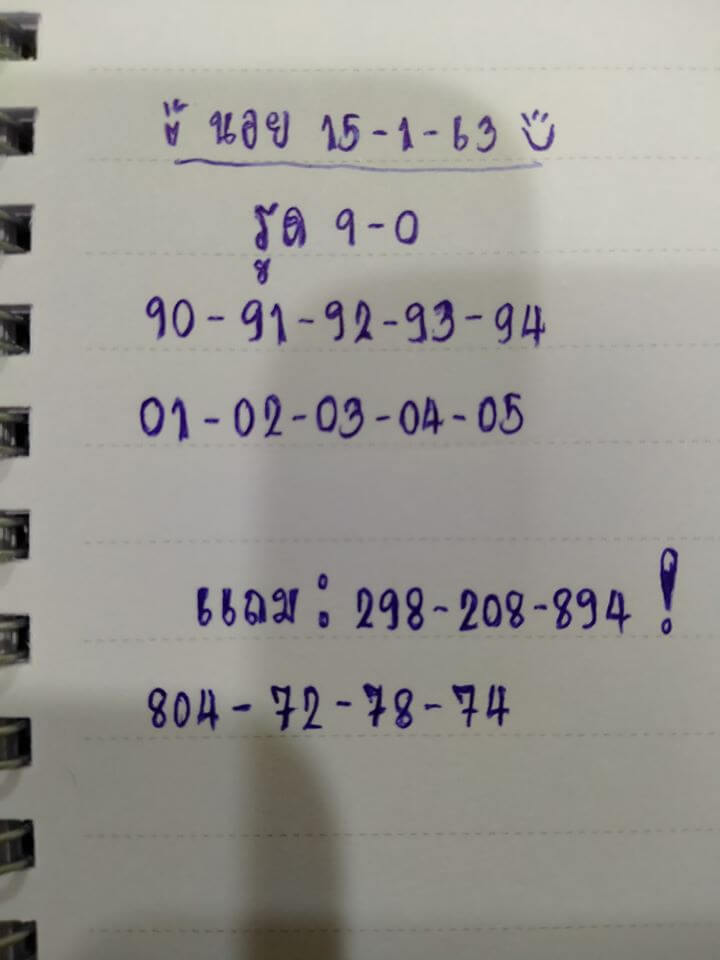 นอย 15-1-63
รูด 9-0
90-91-92-93-94
01-02-03-04-05
แถม: 298-208-894!
804-72-78-74